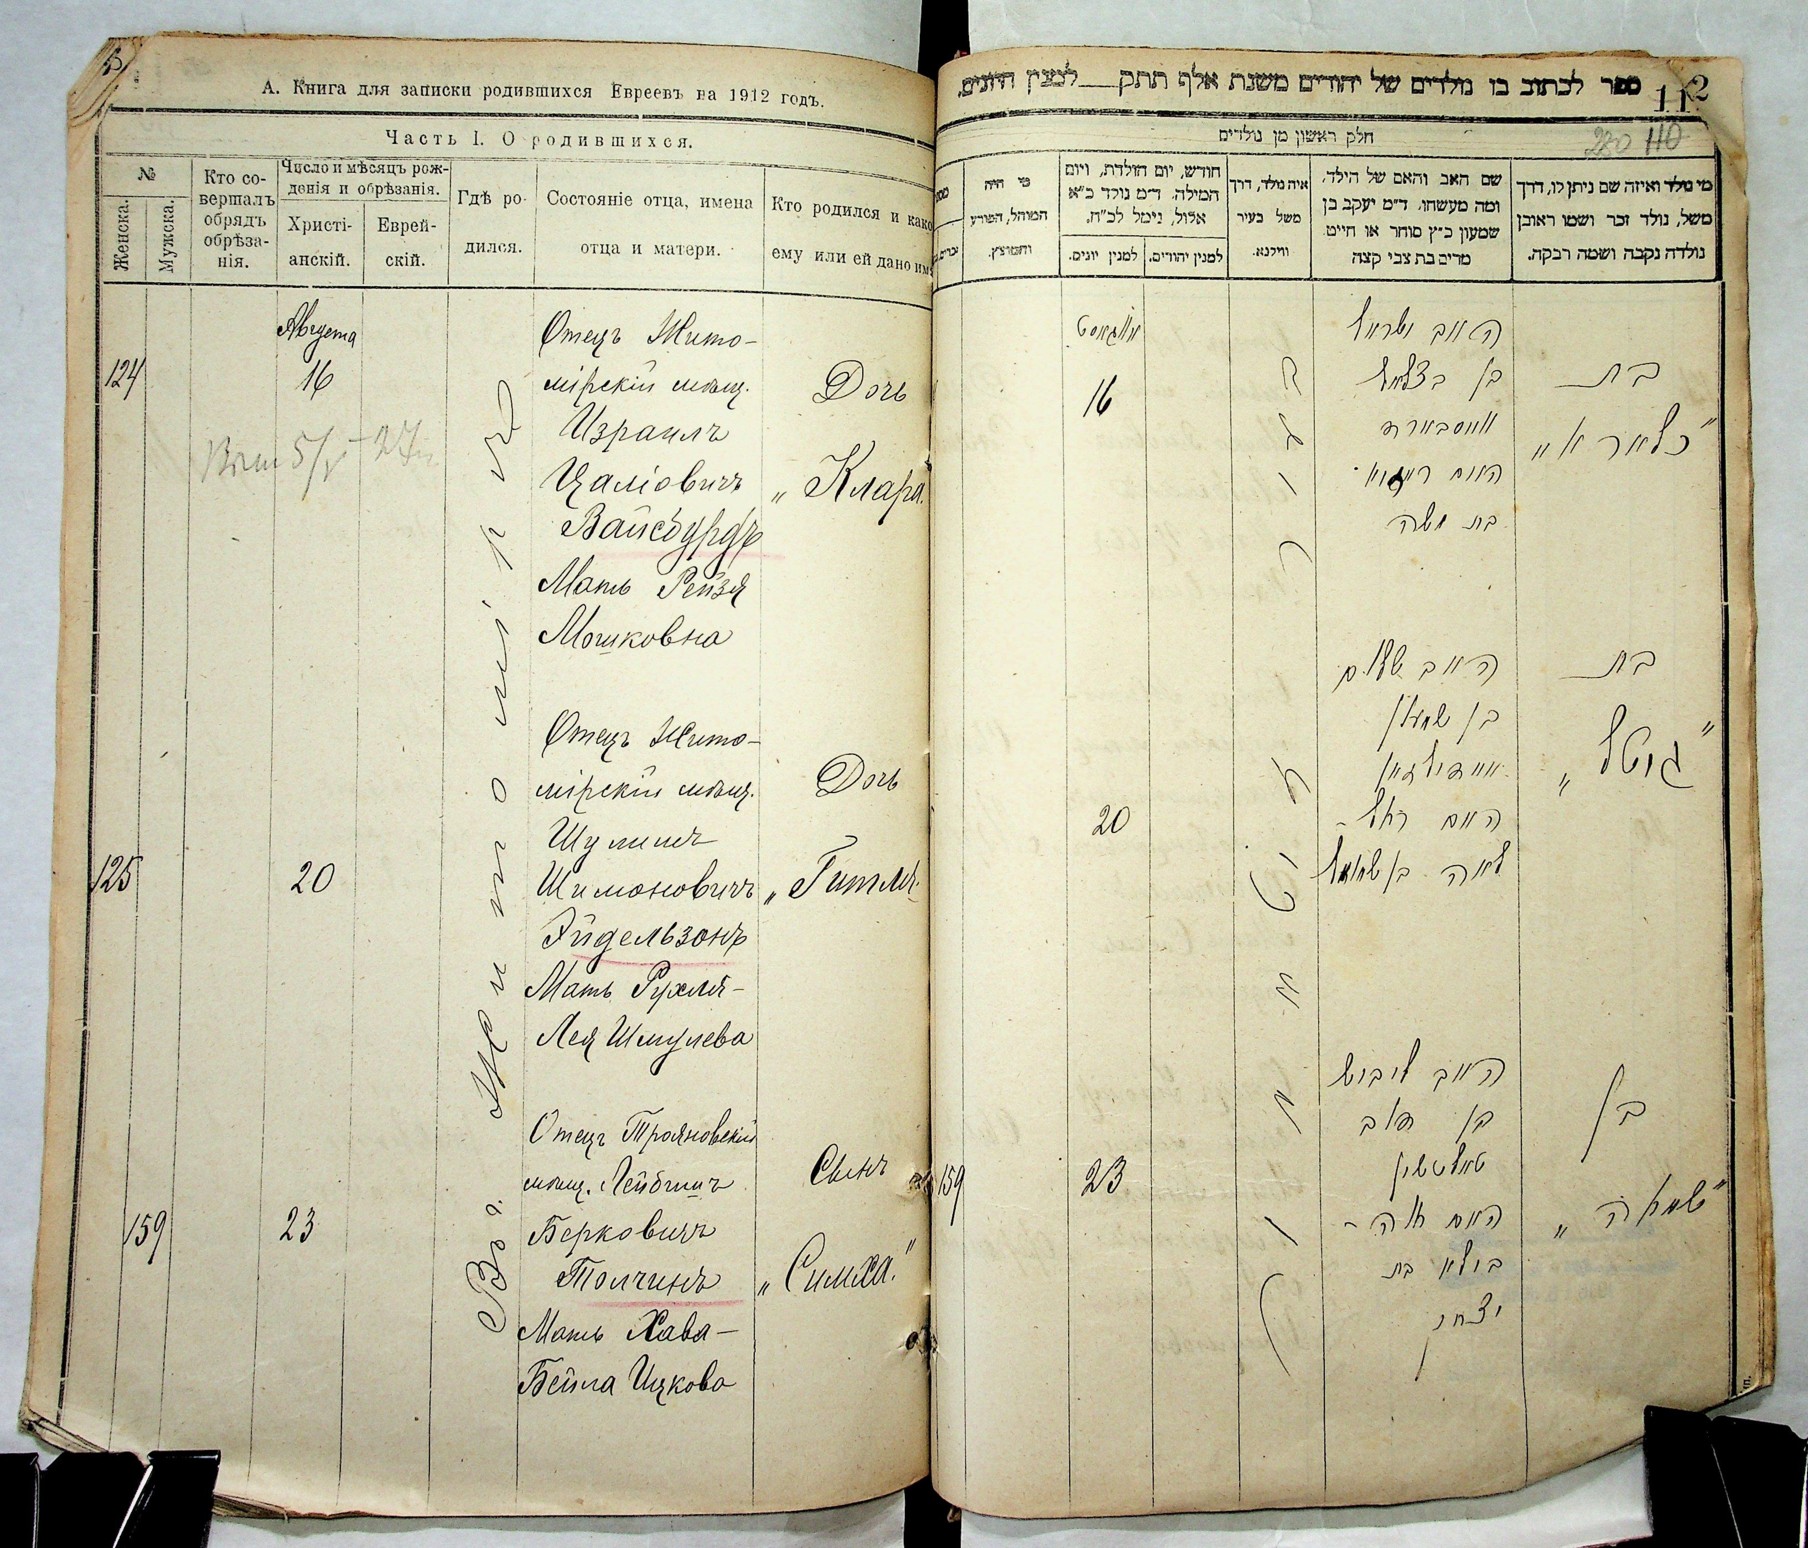 А. Книга для записки родившихся Евреевъ на 1912 годъ.
Часть I. О родившихся.
№
Женска.
Мужска.
Кто со-
вершалъ
обрядъ
обрѣза-
нія.
Число и мѣсяцъ рож-
денія и обрѣзанія.
Христі-
анскій.
Еврей-
скій.
Гдѣ ро-
дился.
Состояніе отца, имена
отца и матери.
Кто родился и како
ему или ей дано им
Августа
124
16
Отецъ Жито-
мірскій мѣщ.
Израиль
Цаліовичъ
Вайсбурдъ
Мать Рейзя
Мошковна
Дочь
„Клара"
Въ г. Житомірѣ
125
20
Отецъ Жито-
мірскій мѣщ.
Шулимъ
Шимоновичъ
Эйдельзонъ
Мать Рухля-
Лея Шмулева
Дочь
„Гитля"
159
23
Отецъ Трояновскій
мѣщ. Лейбишъ
Берковичъ
Толчинъ
Мать Хава-
Бейла Ицкова
Сынъ
„Симха"
ספר לכתוב בו נולדים של יהודים משנת אלף תתק למנין היונים.
112
110
חלק ראשון מן נולדים
מי נולד ואיזה שם ניתן לו, דרך
משל, נולד זכר ושמו ראובן
נולדה נקבה ושמה רבקה.
שם האב והאם של הילד,
ומה מעשהו. ד״מ יעקב בן
שמעון כ״ץ סוחר או חייט
מרים בת צבי קצה
איה נולד, דרך
משל בעיר
ווילנא.
חודש, יום הולדת, ויום
המילה. ד״מ נולד כ״א
אלול, נימל לכ״ח.
למנין יהודים.
למנין יונים.
מי היה
המוהל, הפורע
והמוצץ.
אויגוסט
16
האב ישראל
בן בצלאל
ווייסבורד
האם רייזא
בת משה
בת
„כלארא"
20
האב שלום
בן שמעון
איידילזאן
האם רחל-
לאה בן שמואל
בת
„גיטל"
159
23
האב לייבוש
בן דוב
טאלטשין
האם חוה-
ביילא בת
יצחק
בן
„שמחה"